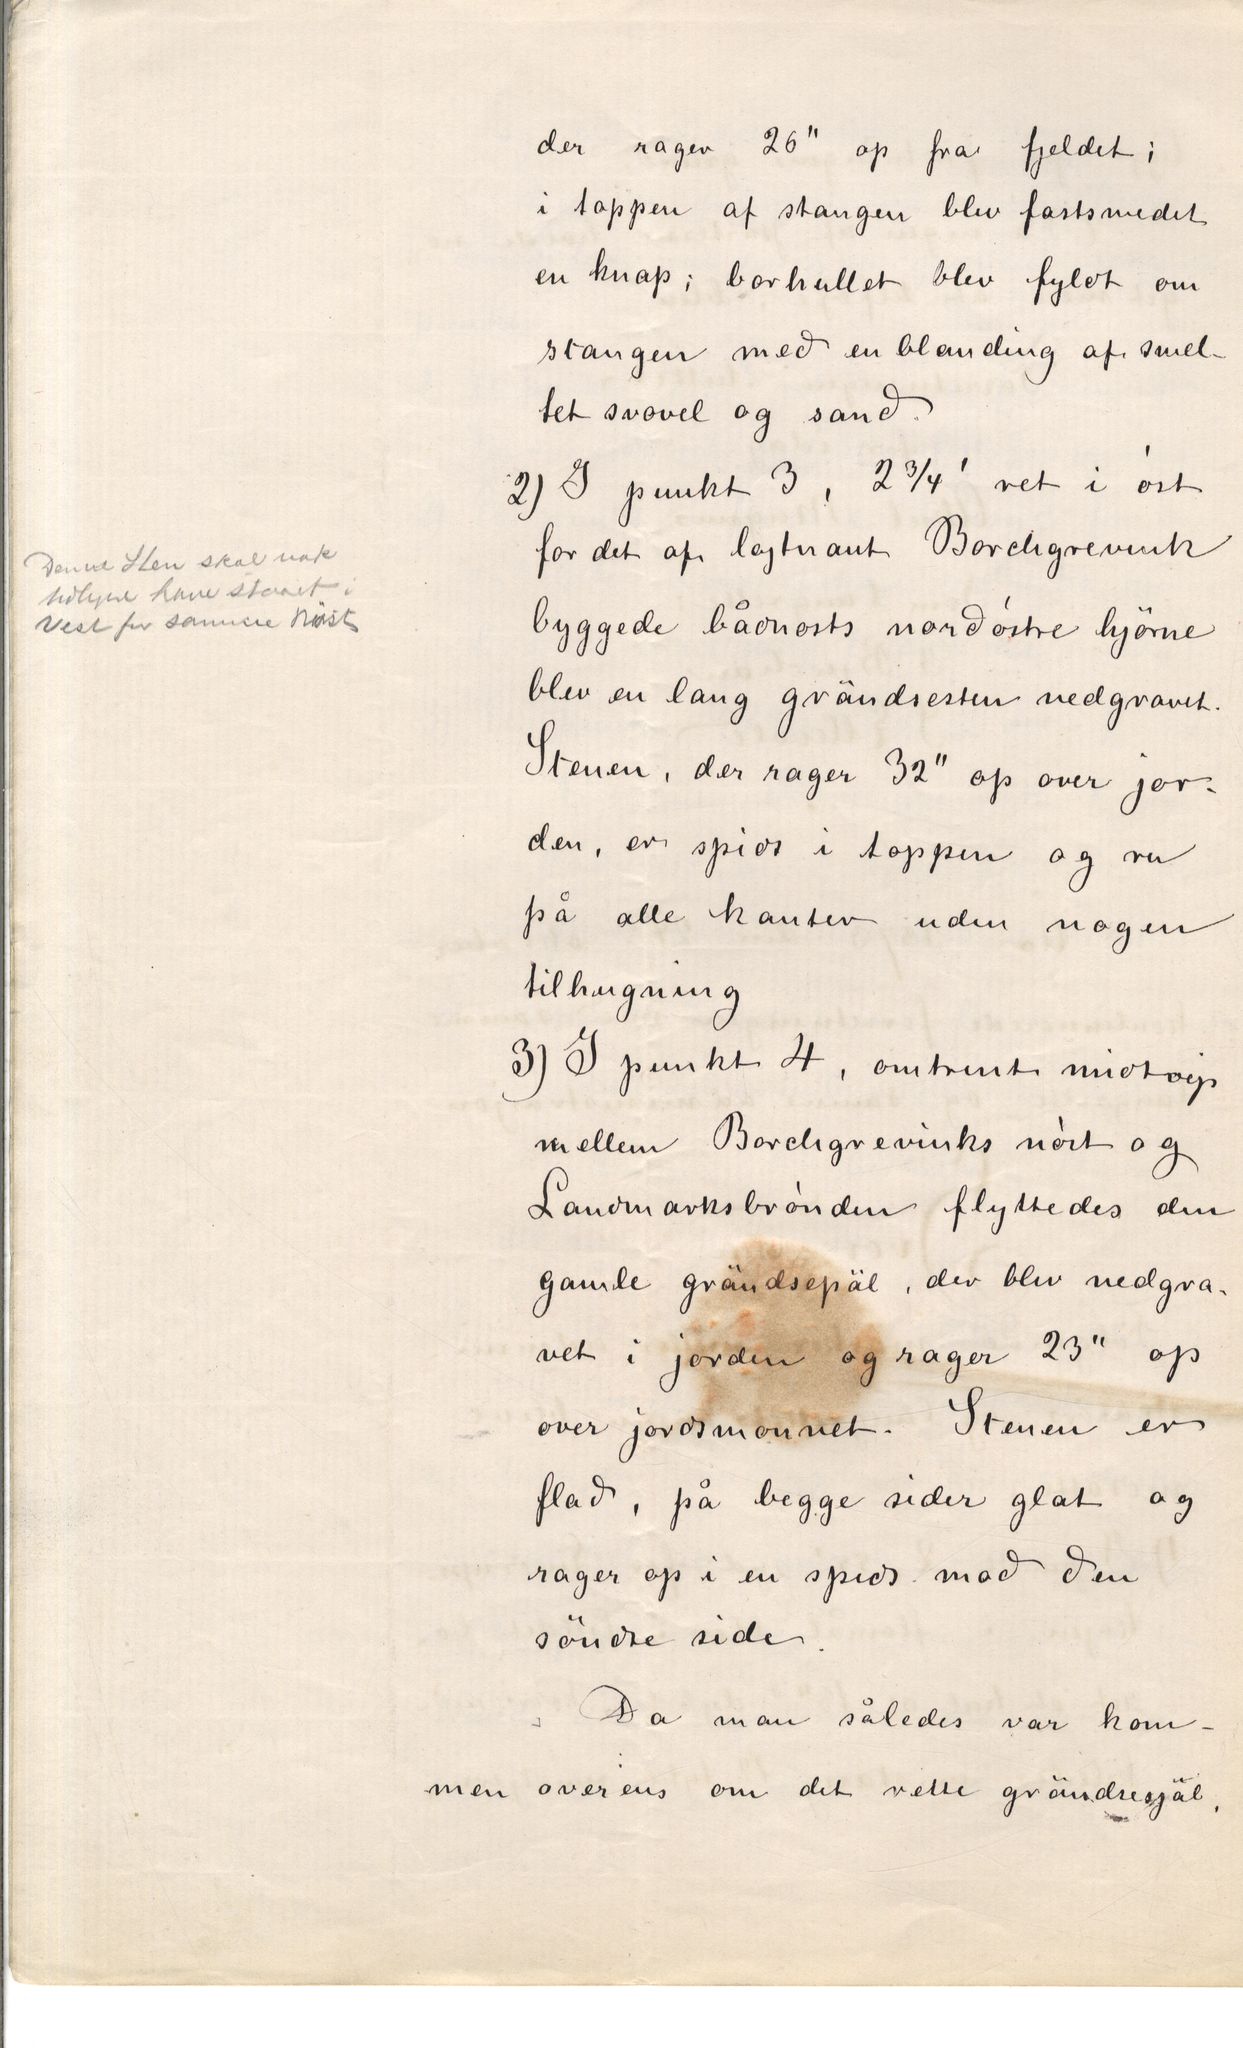 der rager 26" op fra fjeldet;
i toppen af stangen blev fastsmedet
en knap; borhullet blev fyldt om
stangen med en blanding af smel-
tet svovel og sand.
2) I punkt 3, 2 3/4' ret i óst
for det af lojtnant Borchgrevink
byggede bådnosts nordóstre hjörne
blev en lang grändsesten nedgravet.
Stenen, der rager 32" op over jor-
den, er spids i toppen og ru
på alle kanter uden nogen
tilhugning
3) I punkt 4, omtrent midtvejs
mellem Borchgrevinks nóst og
Landmarksbrónden flyttedes den
gamle grändsepäl, der blev nedgra-
vet i jorden og rager 23" op
over jordsmonnet. Stenen er
flad, på begge sider glat og
rager op i en spids mod den
söndre side.
Da man således var kom-
men overens om det rette grändsesjäl,
Denne Sten skal nok
have staaet i
Vest for samme Nöst